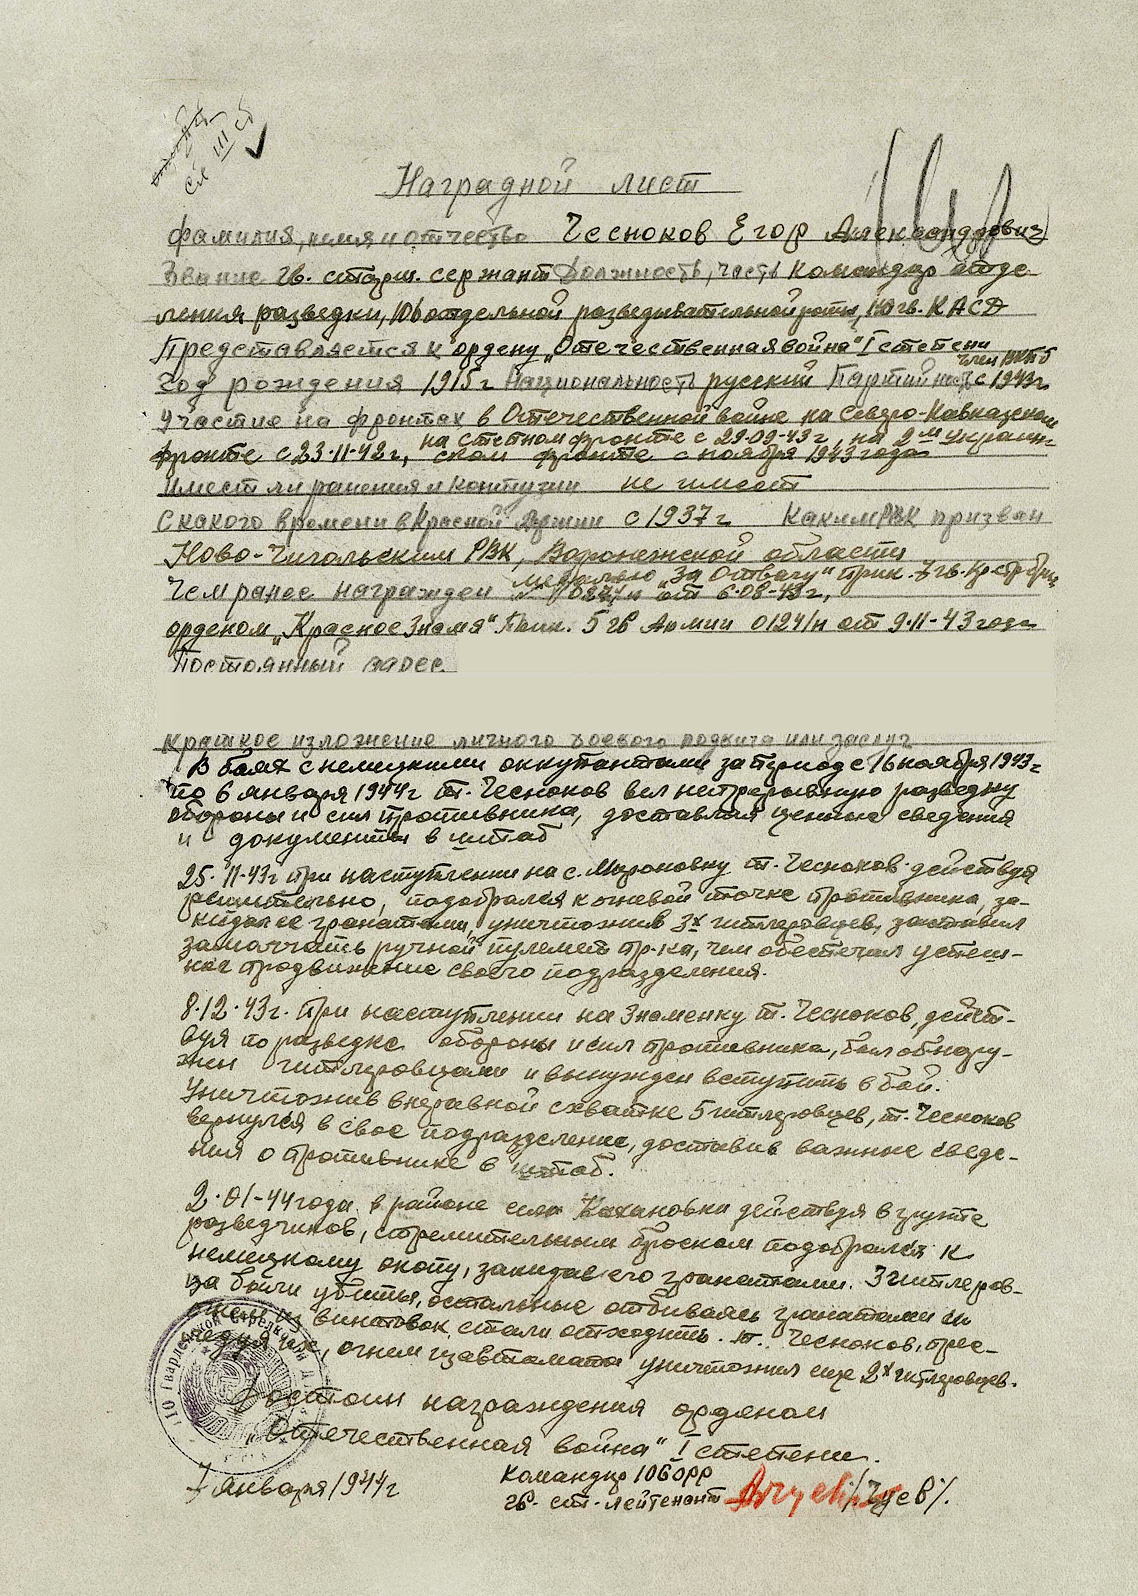 сл III ст
Наградной лист
Фамилия, имя и отчество Чесноков Егор Александрович
Звание гв. старш. сержант Должность, часть Командир отде-
ления разведки, 106 отдельной разведывательной роты, 110 гв. КАСД
Представляется к ордену „Отечественная война" I степени
член ВКПб
Год рождения 1915 г Национальность русский Партийность с 1943 г.
Участие на фронтах в Отечественной войне на Северо-Кавказском
на степном фронте с 29.09-43 г, на 2м Украин-
фронте с 23.11-42 г, ском фронте с ноября 1943 года
Имеет ли ранения и контузии не имеет
С какого времени в Красной Армии с 1937 г Каким РВК призван
Ново-Чигольским РВК, Воронежской области
медалью „За Отвагу" прик. 7 гв.
Чем ранее награжден от 6.08-43 г,
орденом „Красное Знамя" Прик. 5 гв Армии 0124/н от 9.11-43 года
Постоянный адрес.
Краткое изложение личного боевого подвига или заслуг
В боях с немецкими оккупантами за период с 16 ноября 1943 г
по 6 января 1944 г т. Чесноков вел непрерывную разведку
обороны и сил противника, доставляя ценные сведения
и документы в штаб
25.11-43 г при наступлении на с. Мироновку т. Чесноков действуя
решительно, подобрался к огневой точке противника, за-
кидал ее гранатами, уничтожив 3х гитлеровцев, заставил
замолчать ручной пулемет пр-ка, чем обеспечил успеш-
ное продвижение своего подразделения.
8.12.43 г. При наступлении на Знаменку т. Чесноков, дейст-
вуя по разведке обороны и сил противника, был обнару-
жен гитлеровцами и вынужден вступить в бой.
Уничтожив в неравной схватке 5 гитлеровцев, т. Чесноков
вернулся в свое подразделение, доставив важные сведе-
ния о противнике в штаб.
2.01-44 года в районе села Кахановки действуя в группе
разведчиков, стремительным броском подобрался к
немецкому окопу, закидав его гранатами. 3 гитлеров-
ца были убиты, остальные отбиваясь гранатами и
огнем из винтовок стали отходить. т. Чесноков, прес-
ледуя их, огнем из автомата уничтожил еще 2х гитлеровцев.
Достоин награждения орденом
„Отечественная война" I степени.
7 января 1944 г
Командир 106 ОРР
гв. ст. лейтенант /Чуев/.
110 Гвардейской Стрелковой